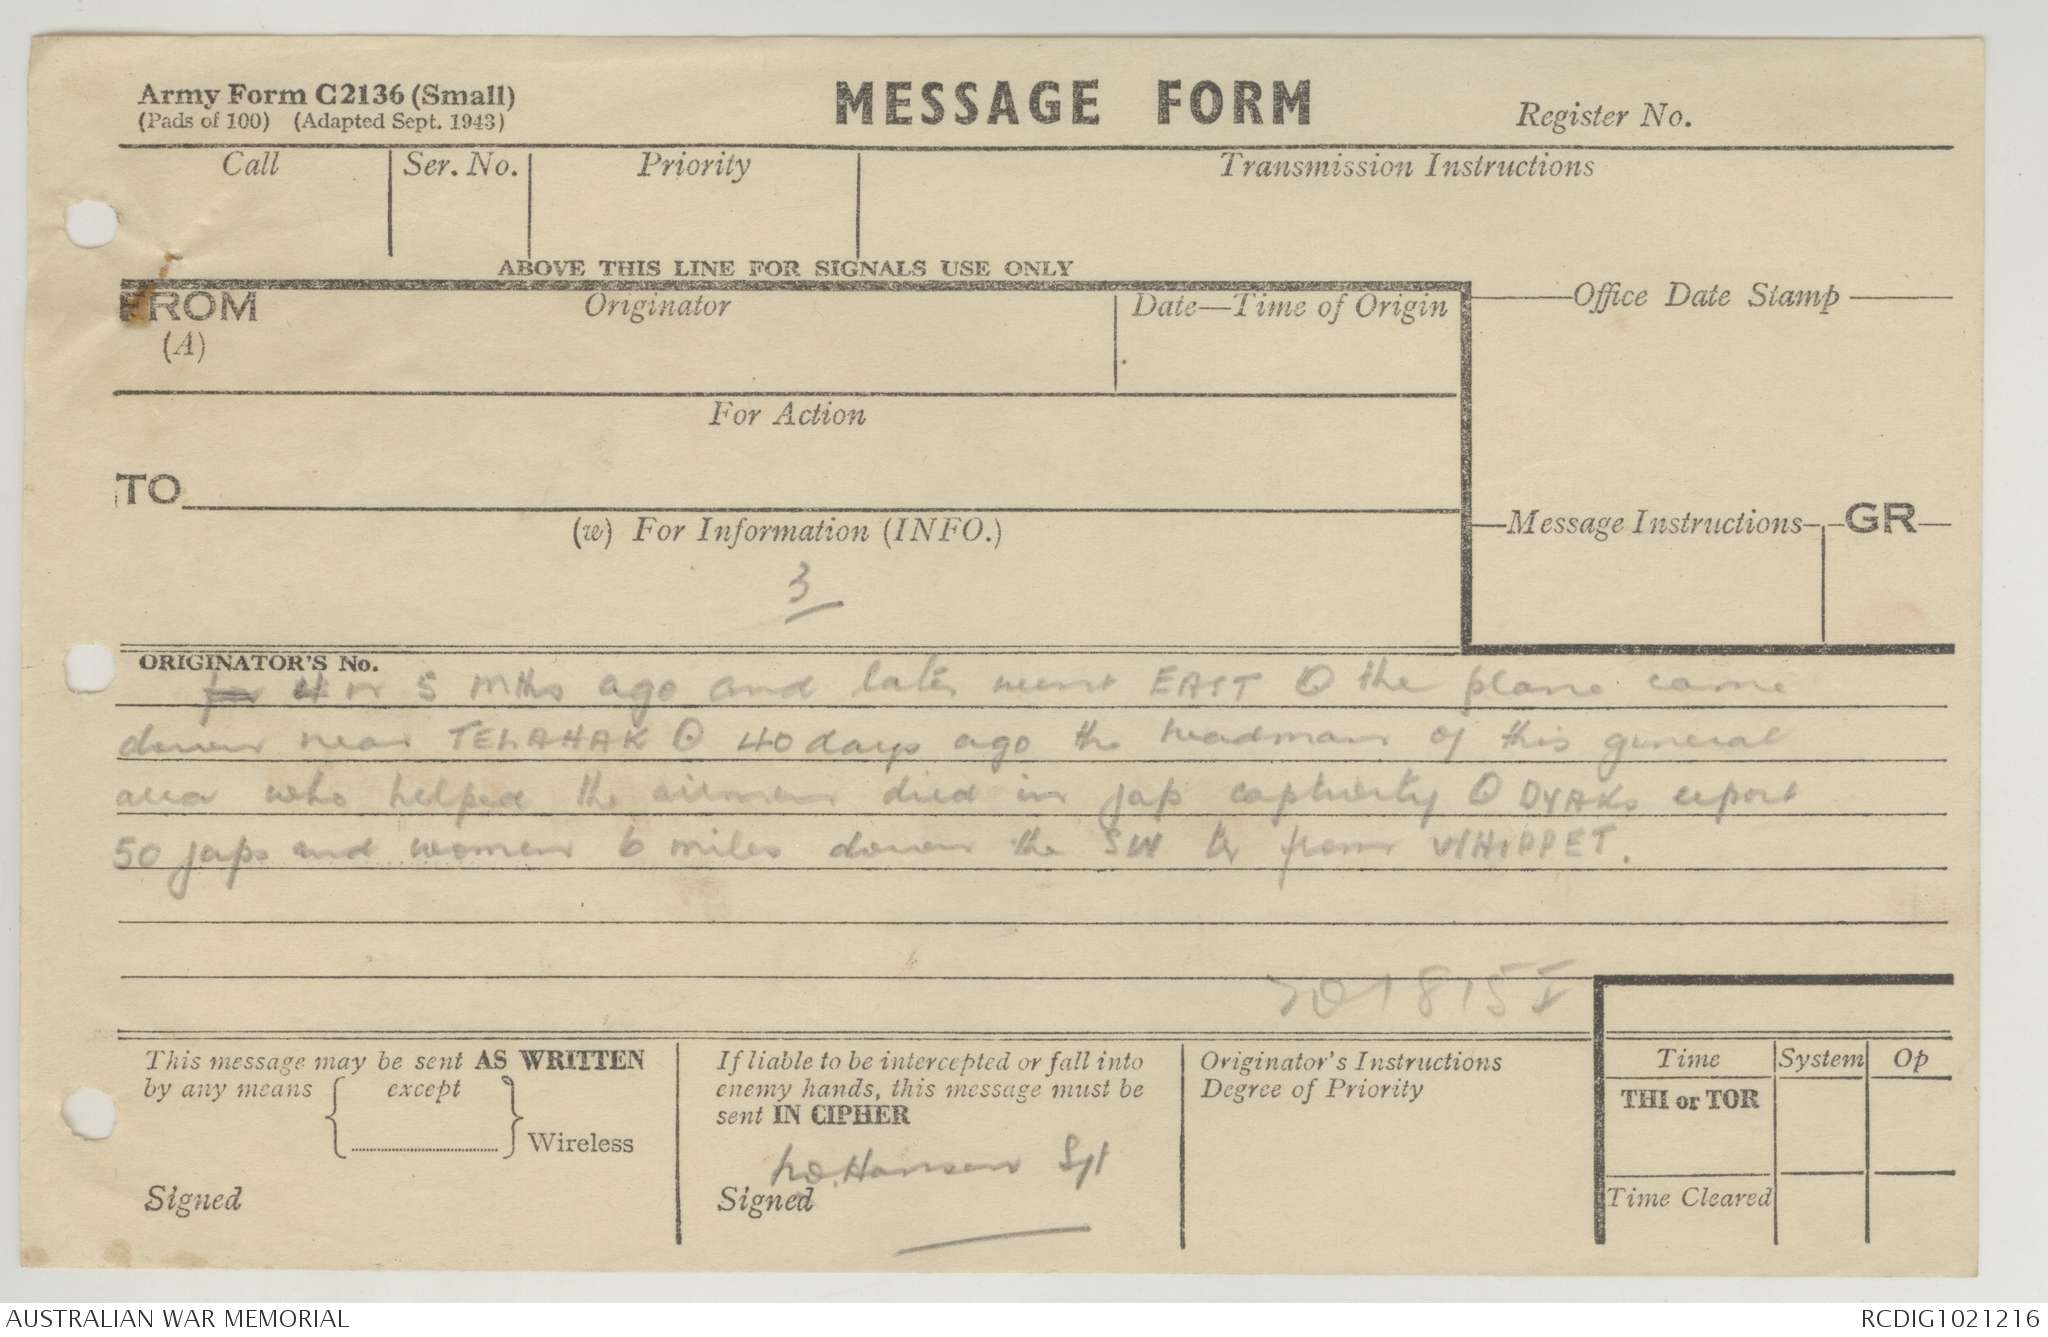 Army Form C2136 (Small)
(Pads of 100) (Adapted Sept. 1943)
MESSAGE FORM
Register No.
Call
Ser. No.
Priority
Transmission Instructions
ABOVE THIS LINE FOR SIGNALS USE ONLY
FROM
(A)
Originator
Date—Time of Origin
Office Date Stamp
For Action
TO
(w) For Information (INFO.)
Message Instructions
GR
3
ORIGINATOR'S No.
4 or 5 mths ago and later went EAST ⊙ the plane came
down near TELAHAK ⊙ 40 days ago the headman of this general
area who helped the airmen died in jap captivity ⊙ DYAKs report
50 japs and women 6 miles down the SW tk from WHIPPET.
201815I
This message may be sent AS WRITTEN
by any means { except } Wireless
Signed
If liable to be intercepted or fall into
enemy hands, this message must be
sent IN CIPHER
Hansen Sgt
Signed
Originator's Instructions
Degree of Priority
Time
System
Op
THI or TOR
Time Cleared
AUSTRALIAN WAR MEMORIAL
RCDIG1021216